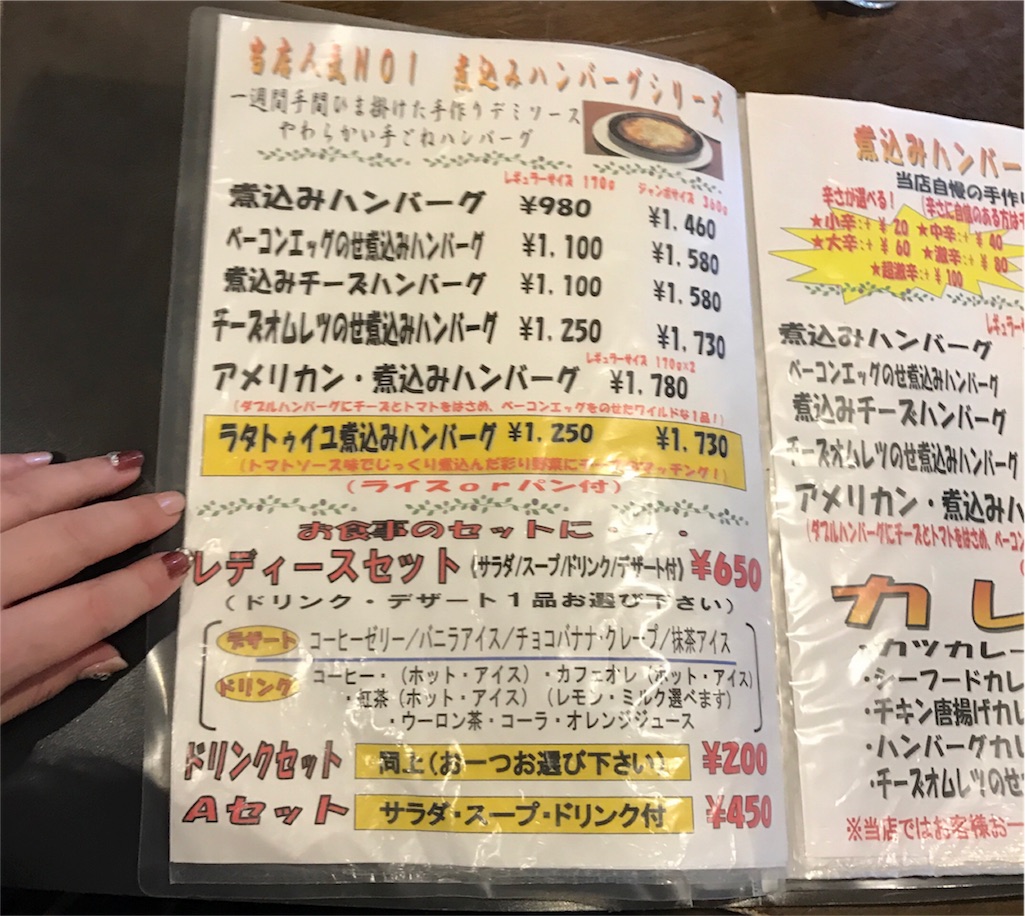 当店人気NO1 煮込みハンバーグシリーズ
一週間手間ひま掛けた手作りデミソース
やわらかい手ごねハンバーグ
レギュラーサイズ 170g ジャンボサイズ 360g
煮込みハンバーグ ¥980 ¥1,460
ベーコンエッグのせ煮込みハンバーグ ¥1,100 ¥1,580
煮込みチーズハンバーグ ¥1,100 ¥1,580
チーズオムレツのせ煮込みハンバーグ ¥1,250 ¥1,730
レギュラーサイズ 170g×2
アメリカン・煮込みハンバーグ ¥1,780
(ダブルハンバーグにチーズとトマトをはさめ、ベーコンエッグをのせたワイルドな1品!)
ラタトゥイユ煮込みハンバーグ ¥1,250 ¥1,730
(トマトソース味でじっくり煮込んだ彩り野菜にチーズがマッチング!)
(ライスorパン付)
お食事のセットに・・・
レディースセット (サラダ/スープ/ドリンク/デザート付) ¥650
(ドリンク・デザート1品お選び下さい)
デザート コーヒーゼリー/バニラアイス/チョコバナナ・クレープ/抹茶アイス
ドリンク コーヒー・(ホット・アイス)・カフェオレ(ホット・アイス)
・紅茶(ホット・アイス)(レモン・ミルク選べます)
・ウーロン茶・コーラ・オレンジジュース
ドリンクセット 同上(お一つお選び下さい) ¥200
Aセット サラダ・スープ・ドリンク付 ¥450
煮込みハンバー
当店自慢の手作り
辛さが選べる! (辛さに自信のある方は
★小辛:+¥20 ★中辛:+¥40
★大辛:+¥60 ★激辛:+¥80
★超激辛:+¥100
レギュラー
煮込みハンバーグ
ベーコンエッグのせ煮込みハンバーグ
煮込みチーズハンバーグ
チーズオムレツのせ煮込みハンバーグ
アメリカン・煮込みハ
(ダブルハンバーグにチーズとトマトをはさめ、ベーコン
カレ
・カツカレー
・シーフードカレ
・チキン唐揚げカレ
・ハンバーグカレ
・チーズオムレツのせ
※当店ではお客様お一